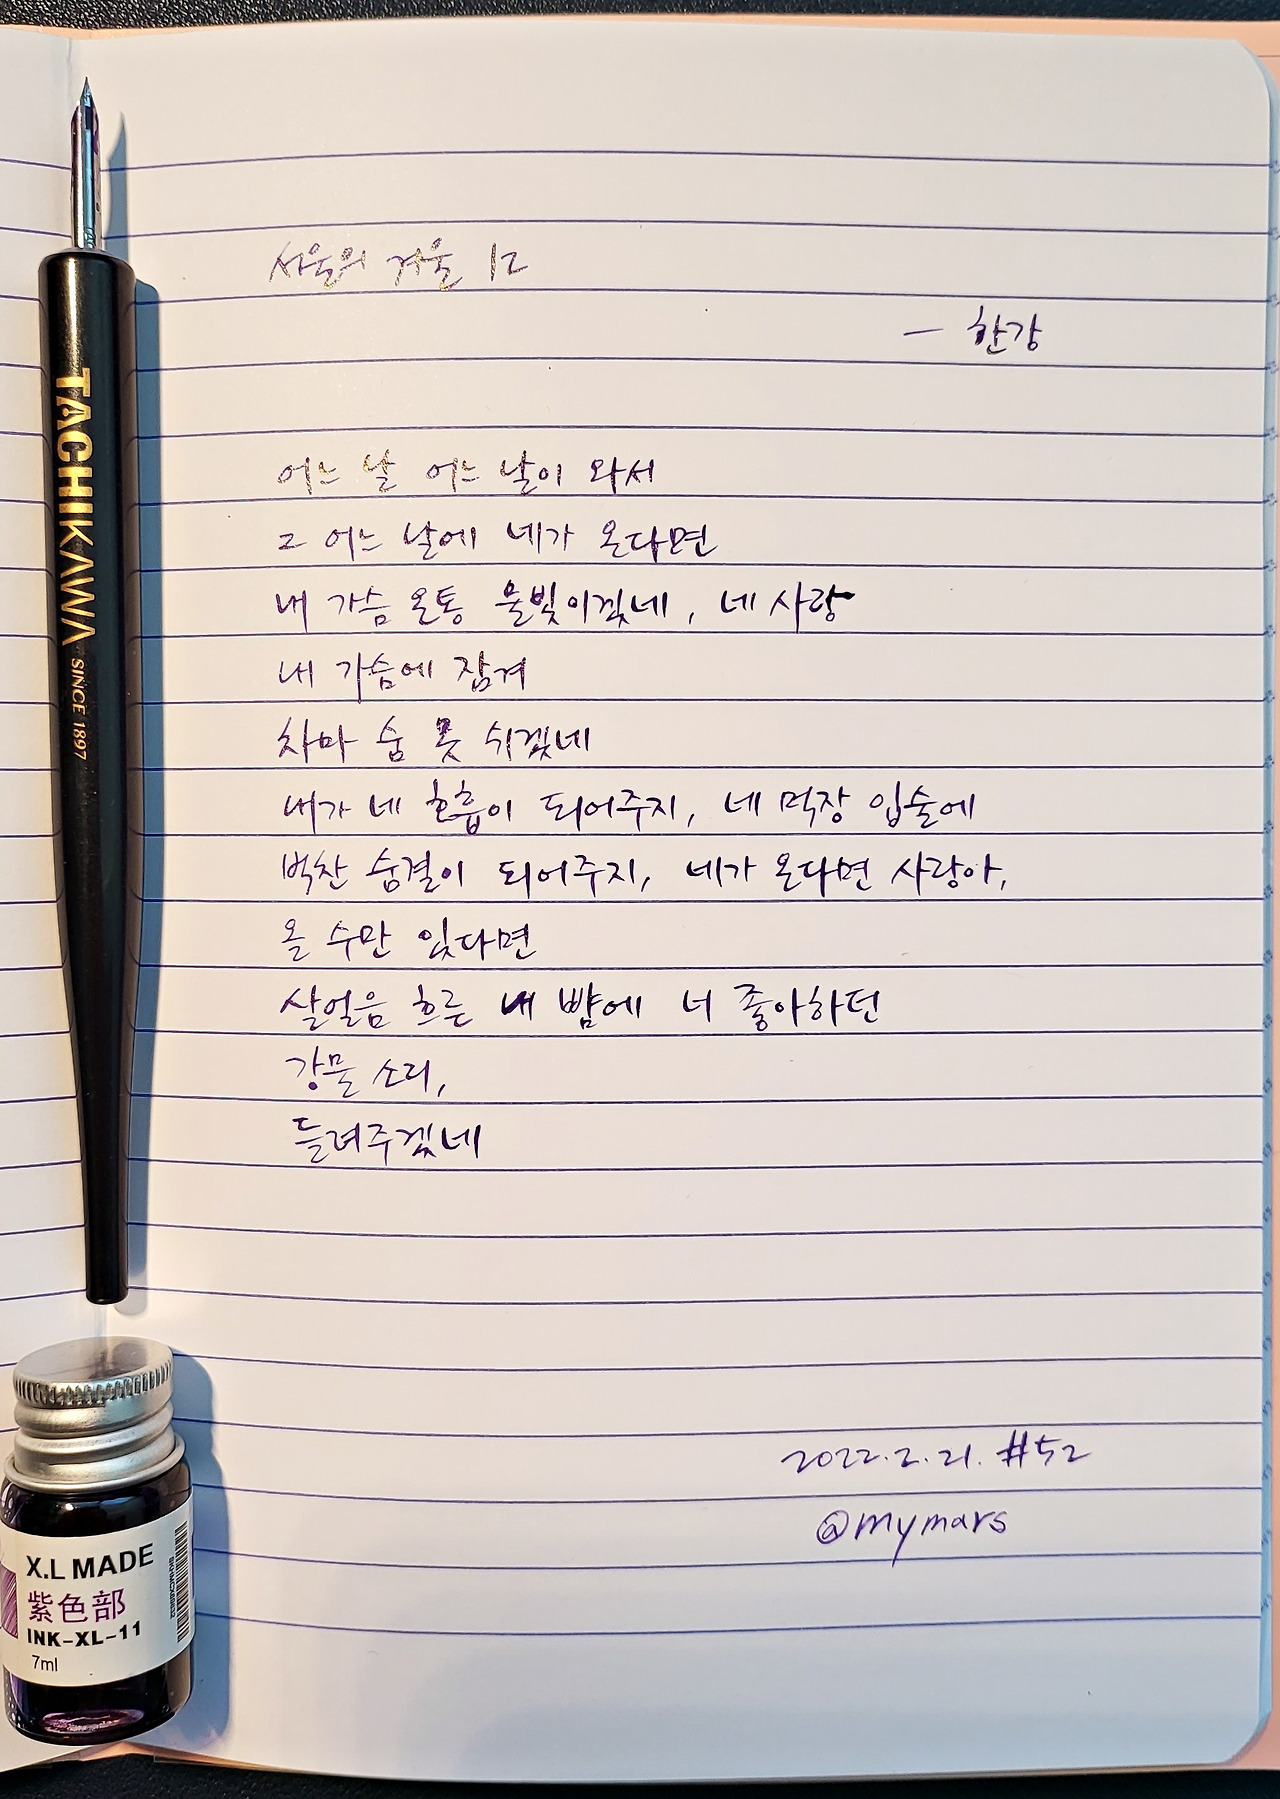 서울의 겨울 12
— 한강
어느 날 어느 날이 와서
그 어느 날에 네가 온다면
내 가슴 온통 물빛이겠네, 네 사랑
내 가슴에 잠겨
차마 숨 못 쉬겠네
내가 네 호흡이 되어주지, 네 먹장 입술에
벅찬 숨결이 되어주지, 네가 온다면 사랑아,
올 수만 있다면
살얼음 흐른 내 뺨에 너 좋아하던
강물 소리,
들려주겠네
2022.2.21. #52
@mymars
TACHIKAWA SINCE 1897
X.L MADE
紫色部
INK-XL-11
7ml